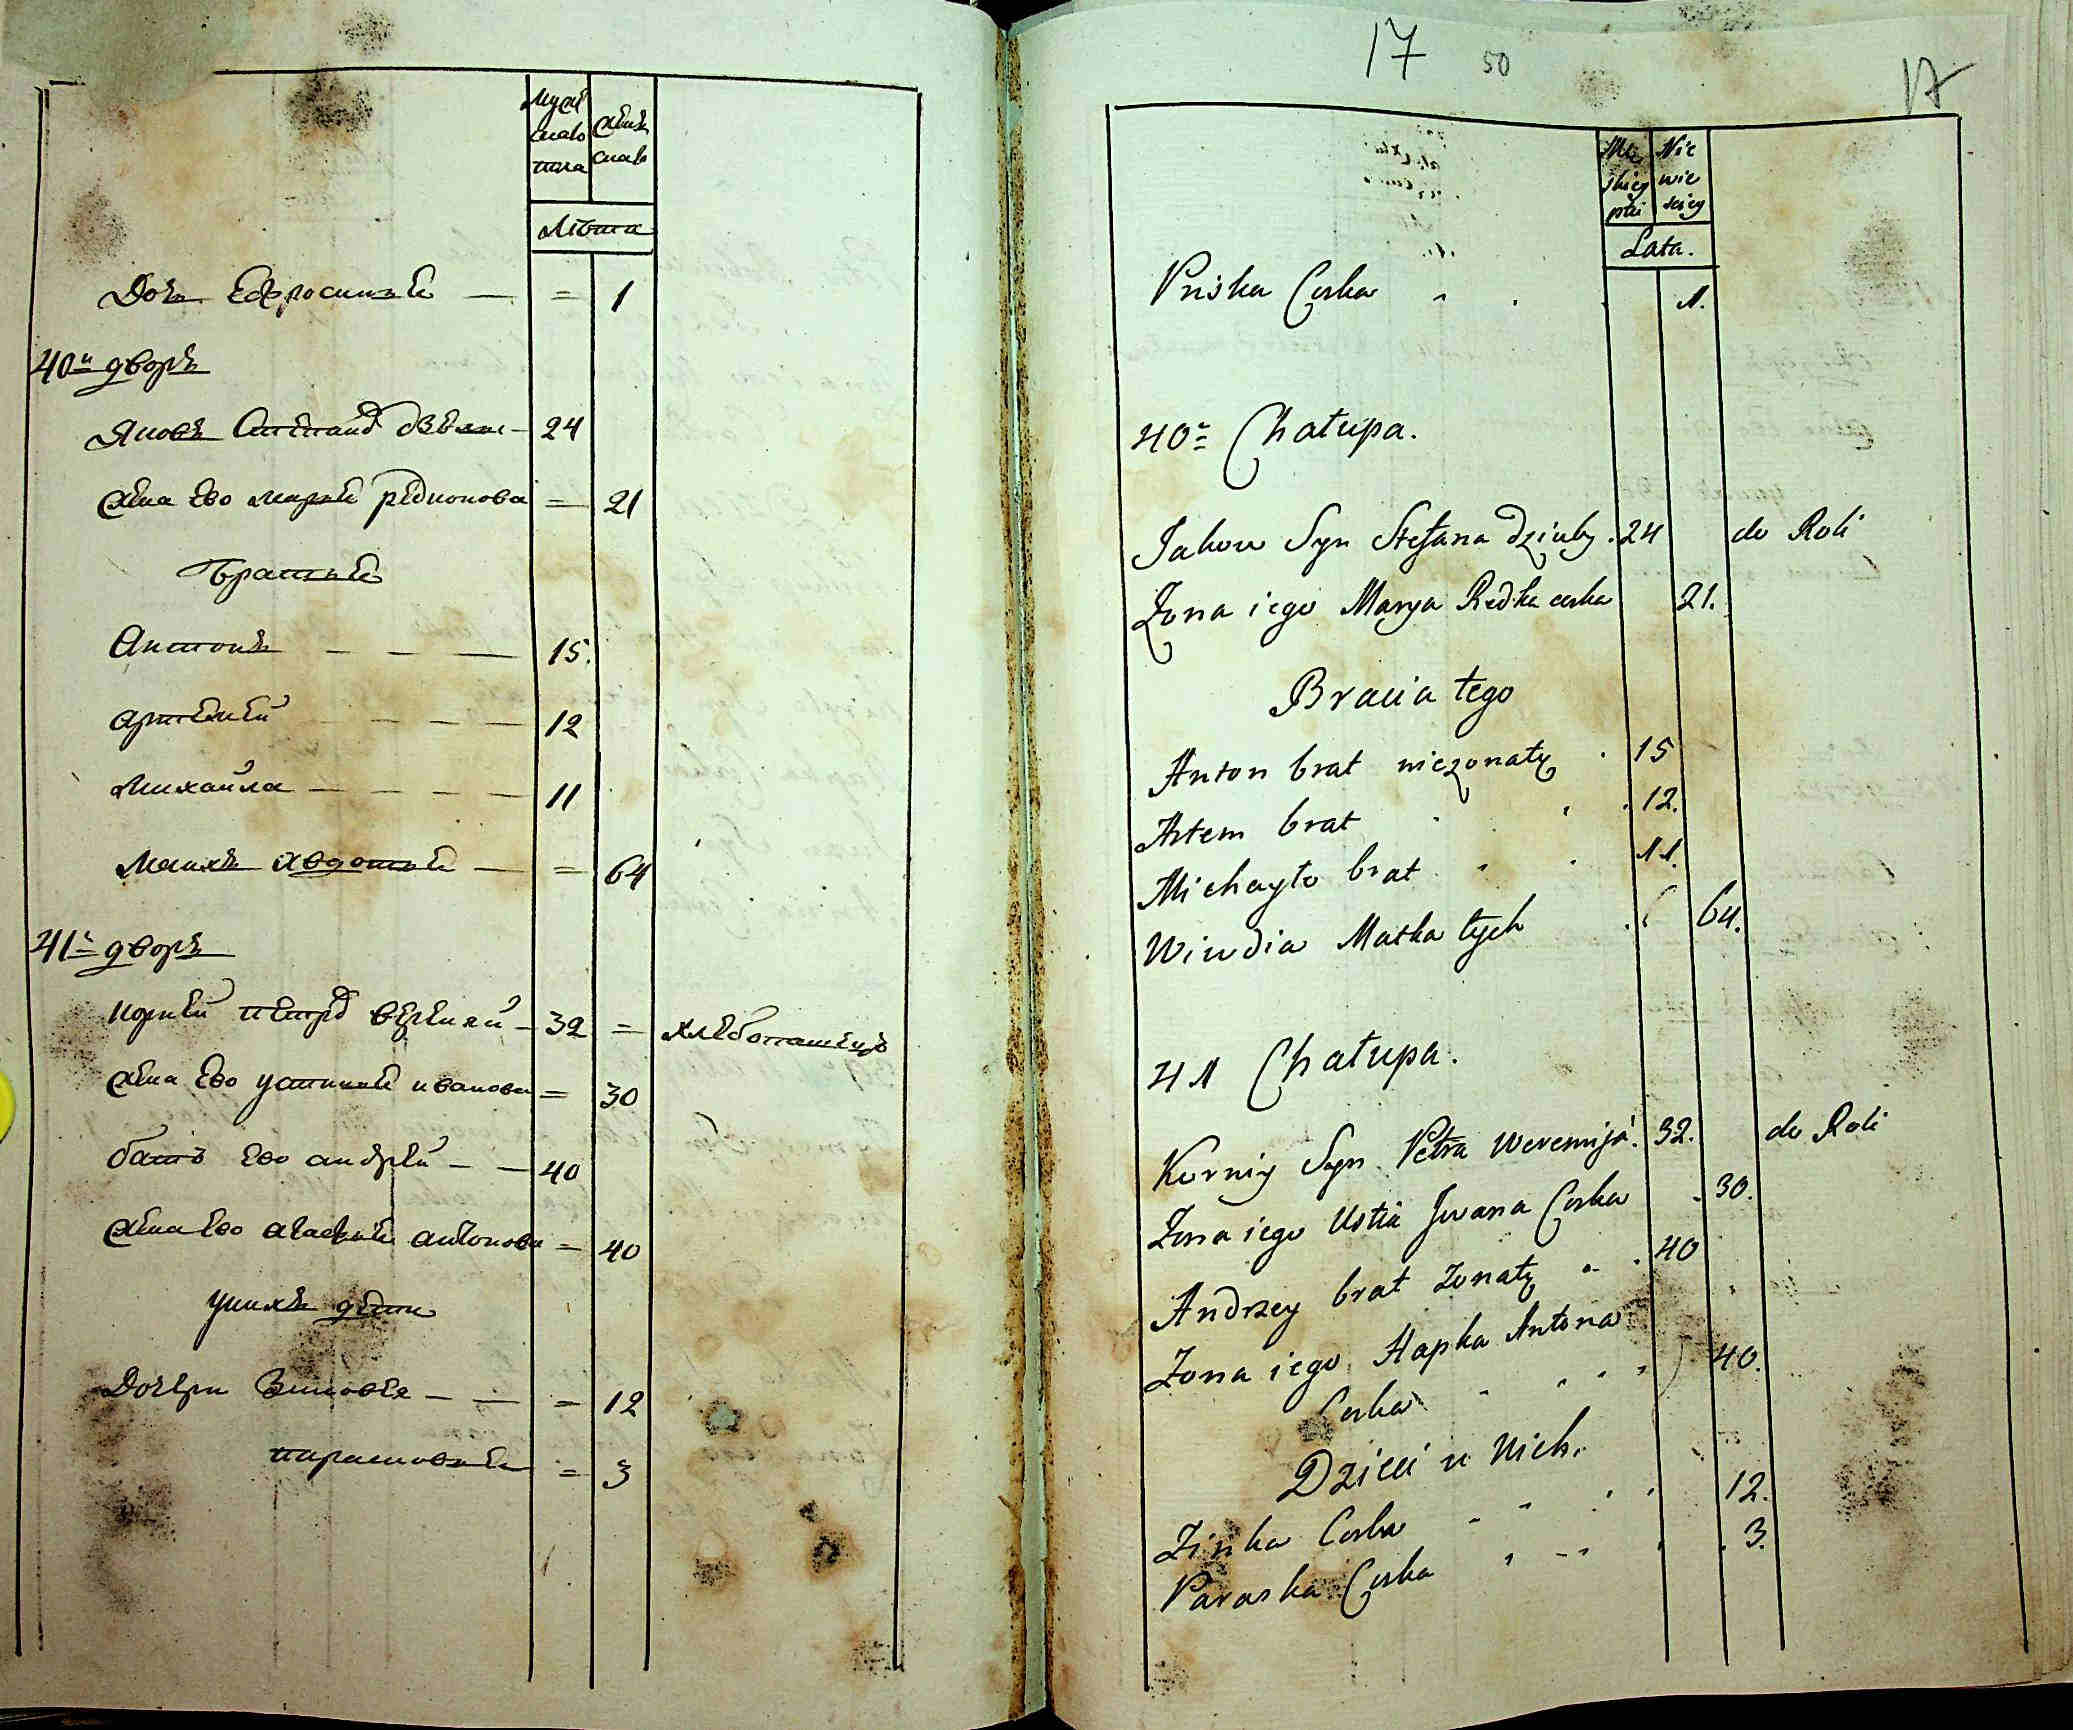 Мужеска пола
Женска
Лѣта
Дочь Ефросинья — = 1
40й дворъ
Яковъ Степанов Дзюбы - 24
Жена ево Марья Редионова = 21
Братья
Антонъ — — — 15.
Артемий — — — 12
Михайла — — — 11
Мать ихъ Авдотья — = 64
41й дворъ
Корней Петров Веремий — 32 = хлебопашецъ
Жена ево Устинья Иванова = 30
брат ево андрей — — 40
Жена ево агафья антонова = 40
у нихъ дети
Дочери Зиновья — — = 12
парасковья = 3
17 50 17
Męskiey płci
Niewieściey
Lata.
Priska Corka 1.
40a Chałupa.
Jakow Syn Stefana Dziuby. 24 do Roli
Żona iego Marya Redka corka 21.
Bracia tego
Anton brat nieżonaty 15
Artem brat 12.
Michayło brat 11.
Wiwdia Matka tych 64.
41 Chałupa.
Korniy Syn Petra Weremija. 32. do Roli
Żona iego Ustia Jwana Corka 30.
Andrzey brat żonaty 40
Żona iego Hapka Antona
Corka 40.
Dzieci u Nich.
Zińka Corka 12.
Paraska Corka 3.